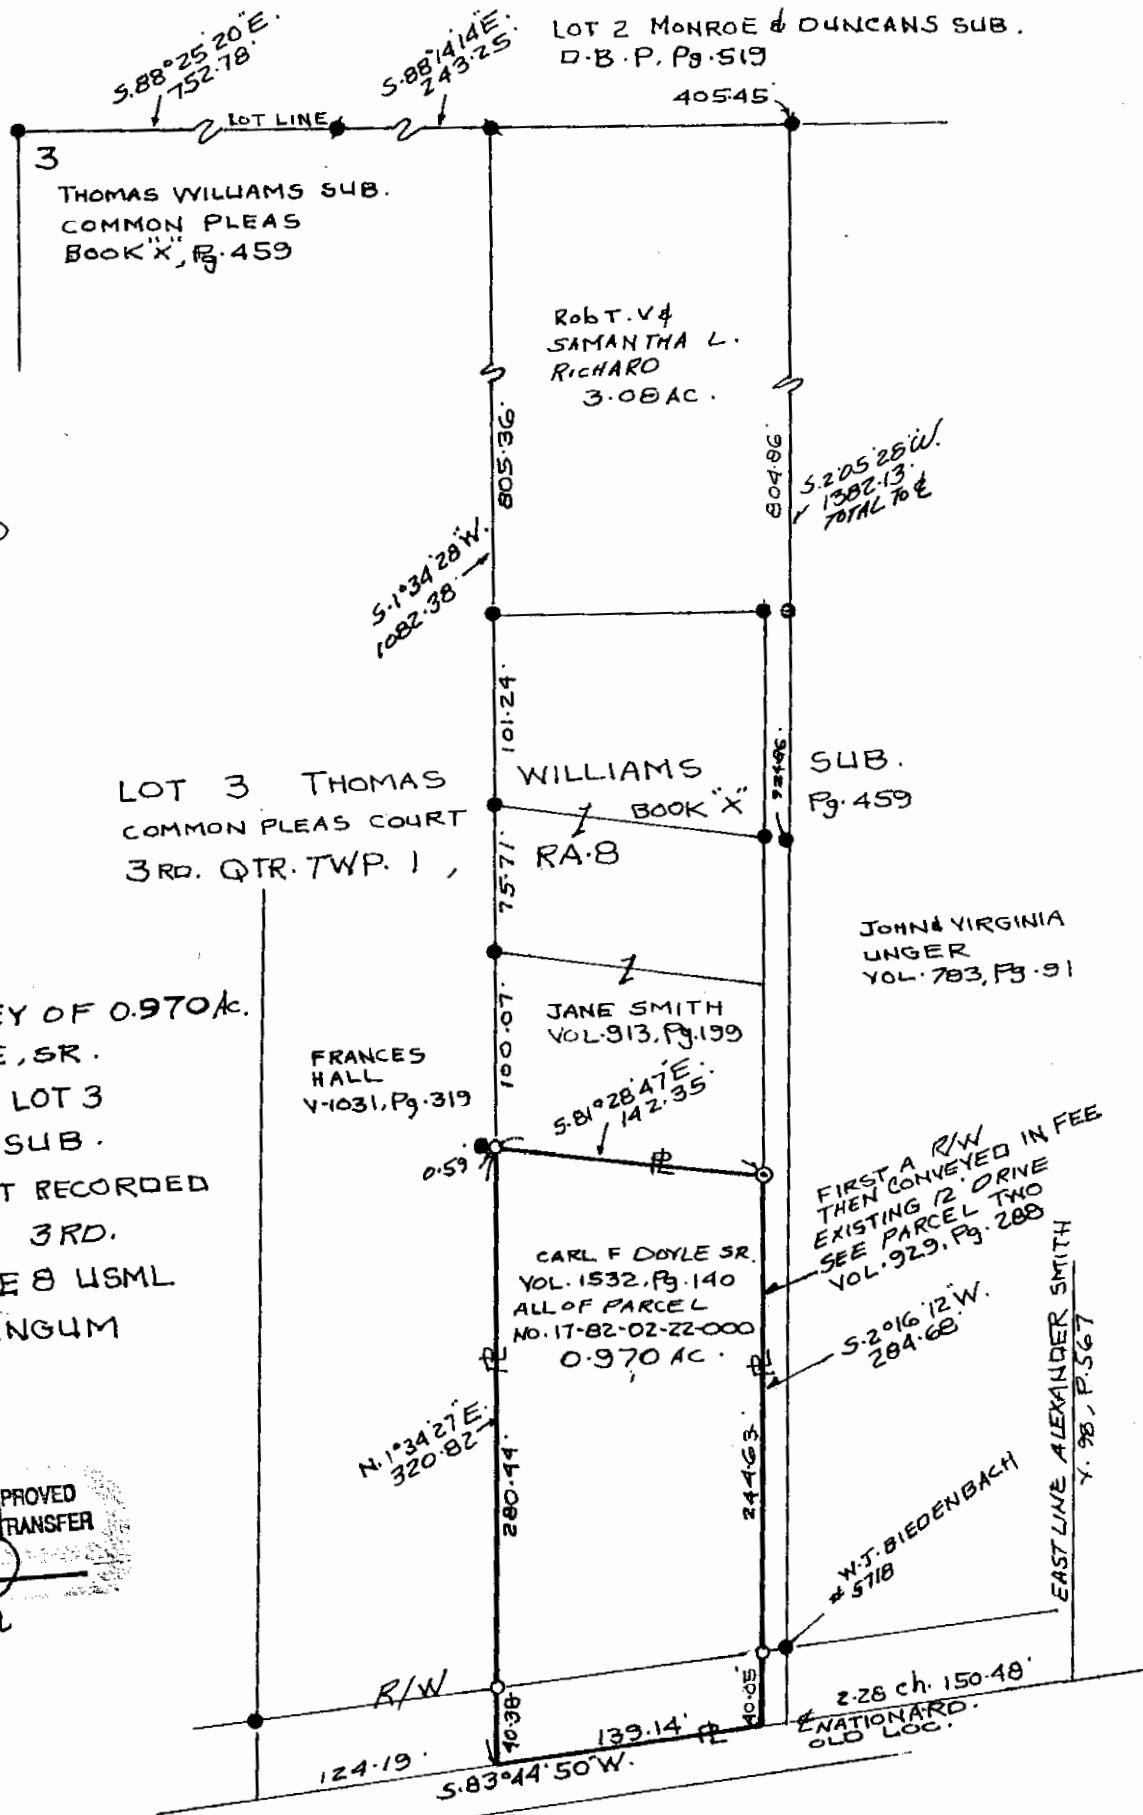 S.88°25'20"E.
752.78'
S.88°14'14"E.
243.25
LOT 2 MONROE & DUNCANS SUB.
D.B.P. Pg.519
405.45'
LOT LINE
3
THOMAS WILLIAMS SUB.
COMMON PLEAS
BOOK "X", Pg.459
ROBT. V &
SAMANTHA L.
RICHARD
3.08 AC.
805.36'
804.86'
S.2°05'28"W.
1382.13'
TOTAL TO ℄
S.1°34'28"W.
1082.38'
101.24'
LOT 3 THOMAS WILLIAMS SUB.
COMMON PLEAS COURT BOOK "X" Pg.459
3RD. QTR. TWP. 1, RA.8
75.71'
JOHN & VIRGINIA
UNGER
VOL.783, Pg.91
EY OF 0.970 Ac.
E, SR.
LOT 3
SUB.
T RECORDED
3RD.
E 8 USML
NGUM
JANE SMITH
VOL.913, Pg.199
100.07'
FRANCES
HALL
V-1031, Pg.319
S.81°28'47"E.
142.35'
0.59'
PL
FIRST A R/W
THEN CONVEYED IN FEE
EXISTING 12' DRIVE
SEE PARCEL TWO
VOL.929, Pg.288
CARL F DOYLE SR.
VOL.1532, Pg.140
ALL OF PARCEL
NO.17-82-02-22-000
0.970 AC.
PL
PL
S.2°16'12"W.
284.68'
N.1°34'27"E.
320.82'
280.44'
244.63'
EAST LINE ALEXANDER SMITH
V.98, P.567
PROVED
TRANSFER
W.J. BIEDENBACH
# 5718
R/W
40.38
40.05'
139.14'
PL
2.28 ch. 150.48'
℄ NATIONA RD.
OLD LOC.
124.19'
S.83°44'50"W.